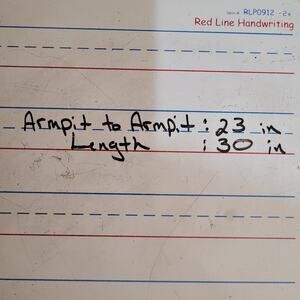 Item# RLP0912 -2x
Red Line Handwriting
Armpit to Armpit : 23 in
Length : 30 in